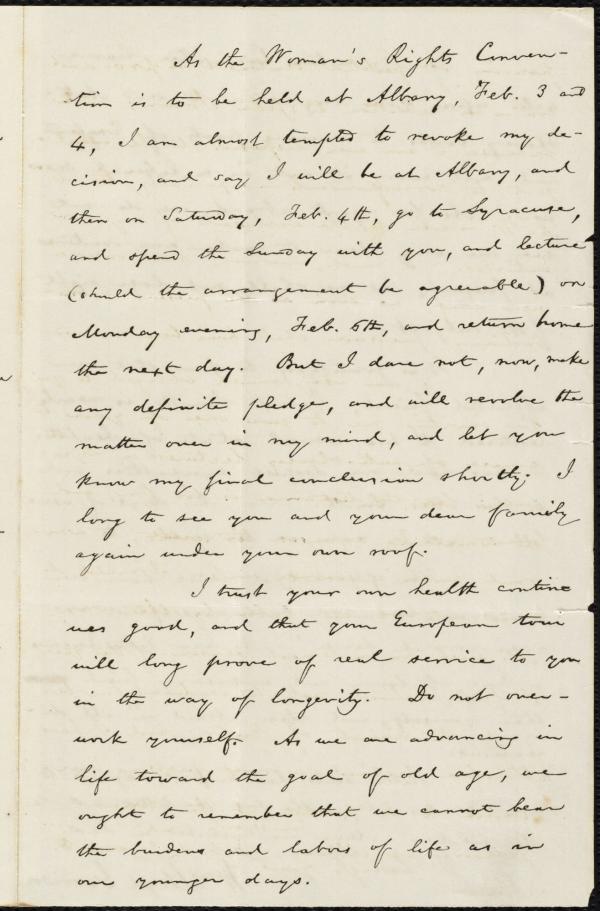 As the Woman's Rights Conven-
tion is to be held at Albany, Feb. 3 and
4, I am almost tempted to revoke my de-
cision, and say I will be at Albany, and
then on Saturday, Feb. 4th, go to Syracuse,
and spend the Sunday with you, and lecture
(should the arrangement be agreeable) on
Monday evening, Feb. 6th, and return home
the next day. But I dare not, now, make
any definite pledge, and will revolve the
matter over in my mind, and let you
know my final conclusion shortly. I
long to see you and your dear family
again under your own roof.
I trust your own health contin-
ues good, and that your European tour
will long prove of real service to you
in the way of longevity. Do not over-
work yourself. As we are advancing in
life toward the goal of old age, we
ought to remember that we cannot bear
the burdens and labors of life as in
our younger days.